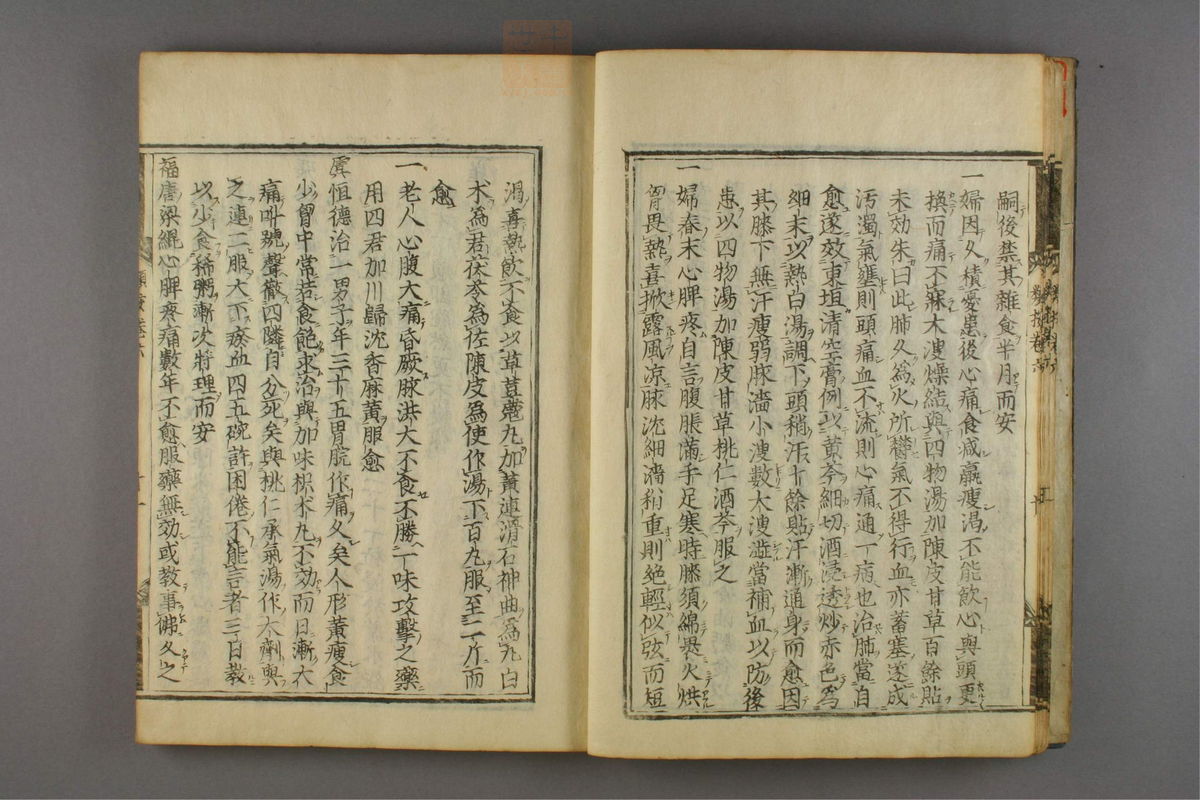 嗣後禁其雜食半月而安
一婦因久積憂患後心痛食减羸瘦渴不能飲心與頭更
換而痛不寐大溲燥結與四物湯加陳皮甘草百餘貼
未効朱曰此肺久爲火所欝氣不得行血亦蓄塞遂成
汚濁氣壅則頭痛血不流則心痛通一病也治肺當自
愈遂效東垣清空膏例以黃芩細切酒浸透炒赤色爲
細末以熱白湯調下頭稍汗十餘貼汗漸通身而愈因
其膝下無汗瘦弱脉濇小溲數大溲澁當補血以防後
患以四物湯加陳皮甘草桃仁酒芩服之
一婦春末心脾疼自言腹脹滿手足寒時膝須綿褁火烘
胷畏熱喜掀露風凉脉沈細濇稍重則絶輕似弦而短
渴喜熱飲不食以草荳蔲丸加黃連滑石神曲爲丸白
术爲君茯苓爲佐陳皮爲使作湯下百丸服至二斤而
愈
一老人心腹大痛昏厥脉洪大不食不勝一味攻擊之藥
用四君加川歸沈香麻黃服愈
虞恒德治一男子年三十五胃脘作痛久矣人形黃瘦食
少胷中常若食飽求治與加味枳术丸不効而日漸大
痛叫號聲徹四隣自分死矣與桃仁承氣湯作大劑與
之連二服大下瘀血四五碗許困倦不能言者三日教
以少食稀粥漸次將理而安
福唐梁緄心脾疼痛數年不愈服藥無効或教事佛久之